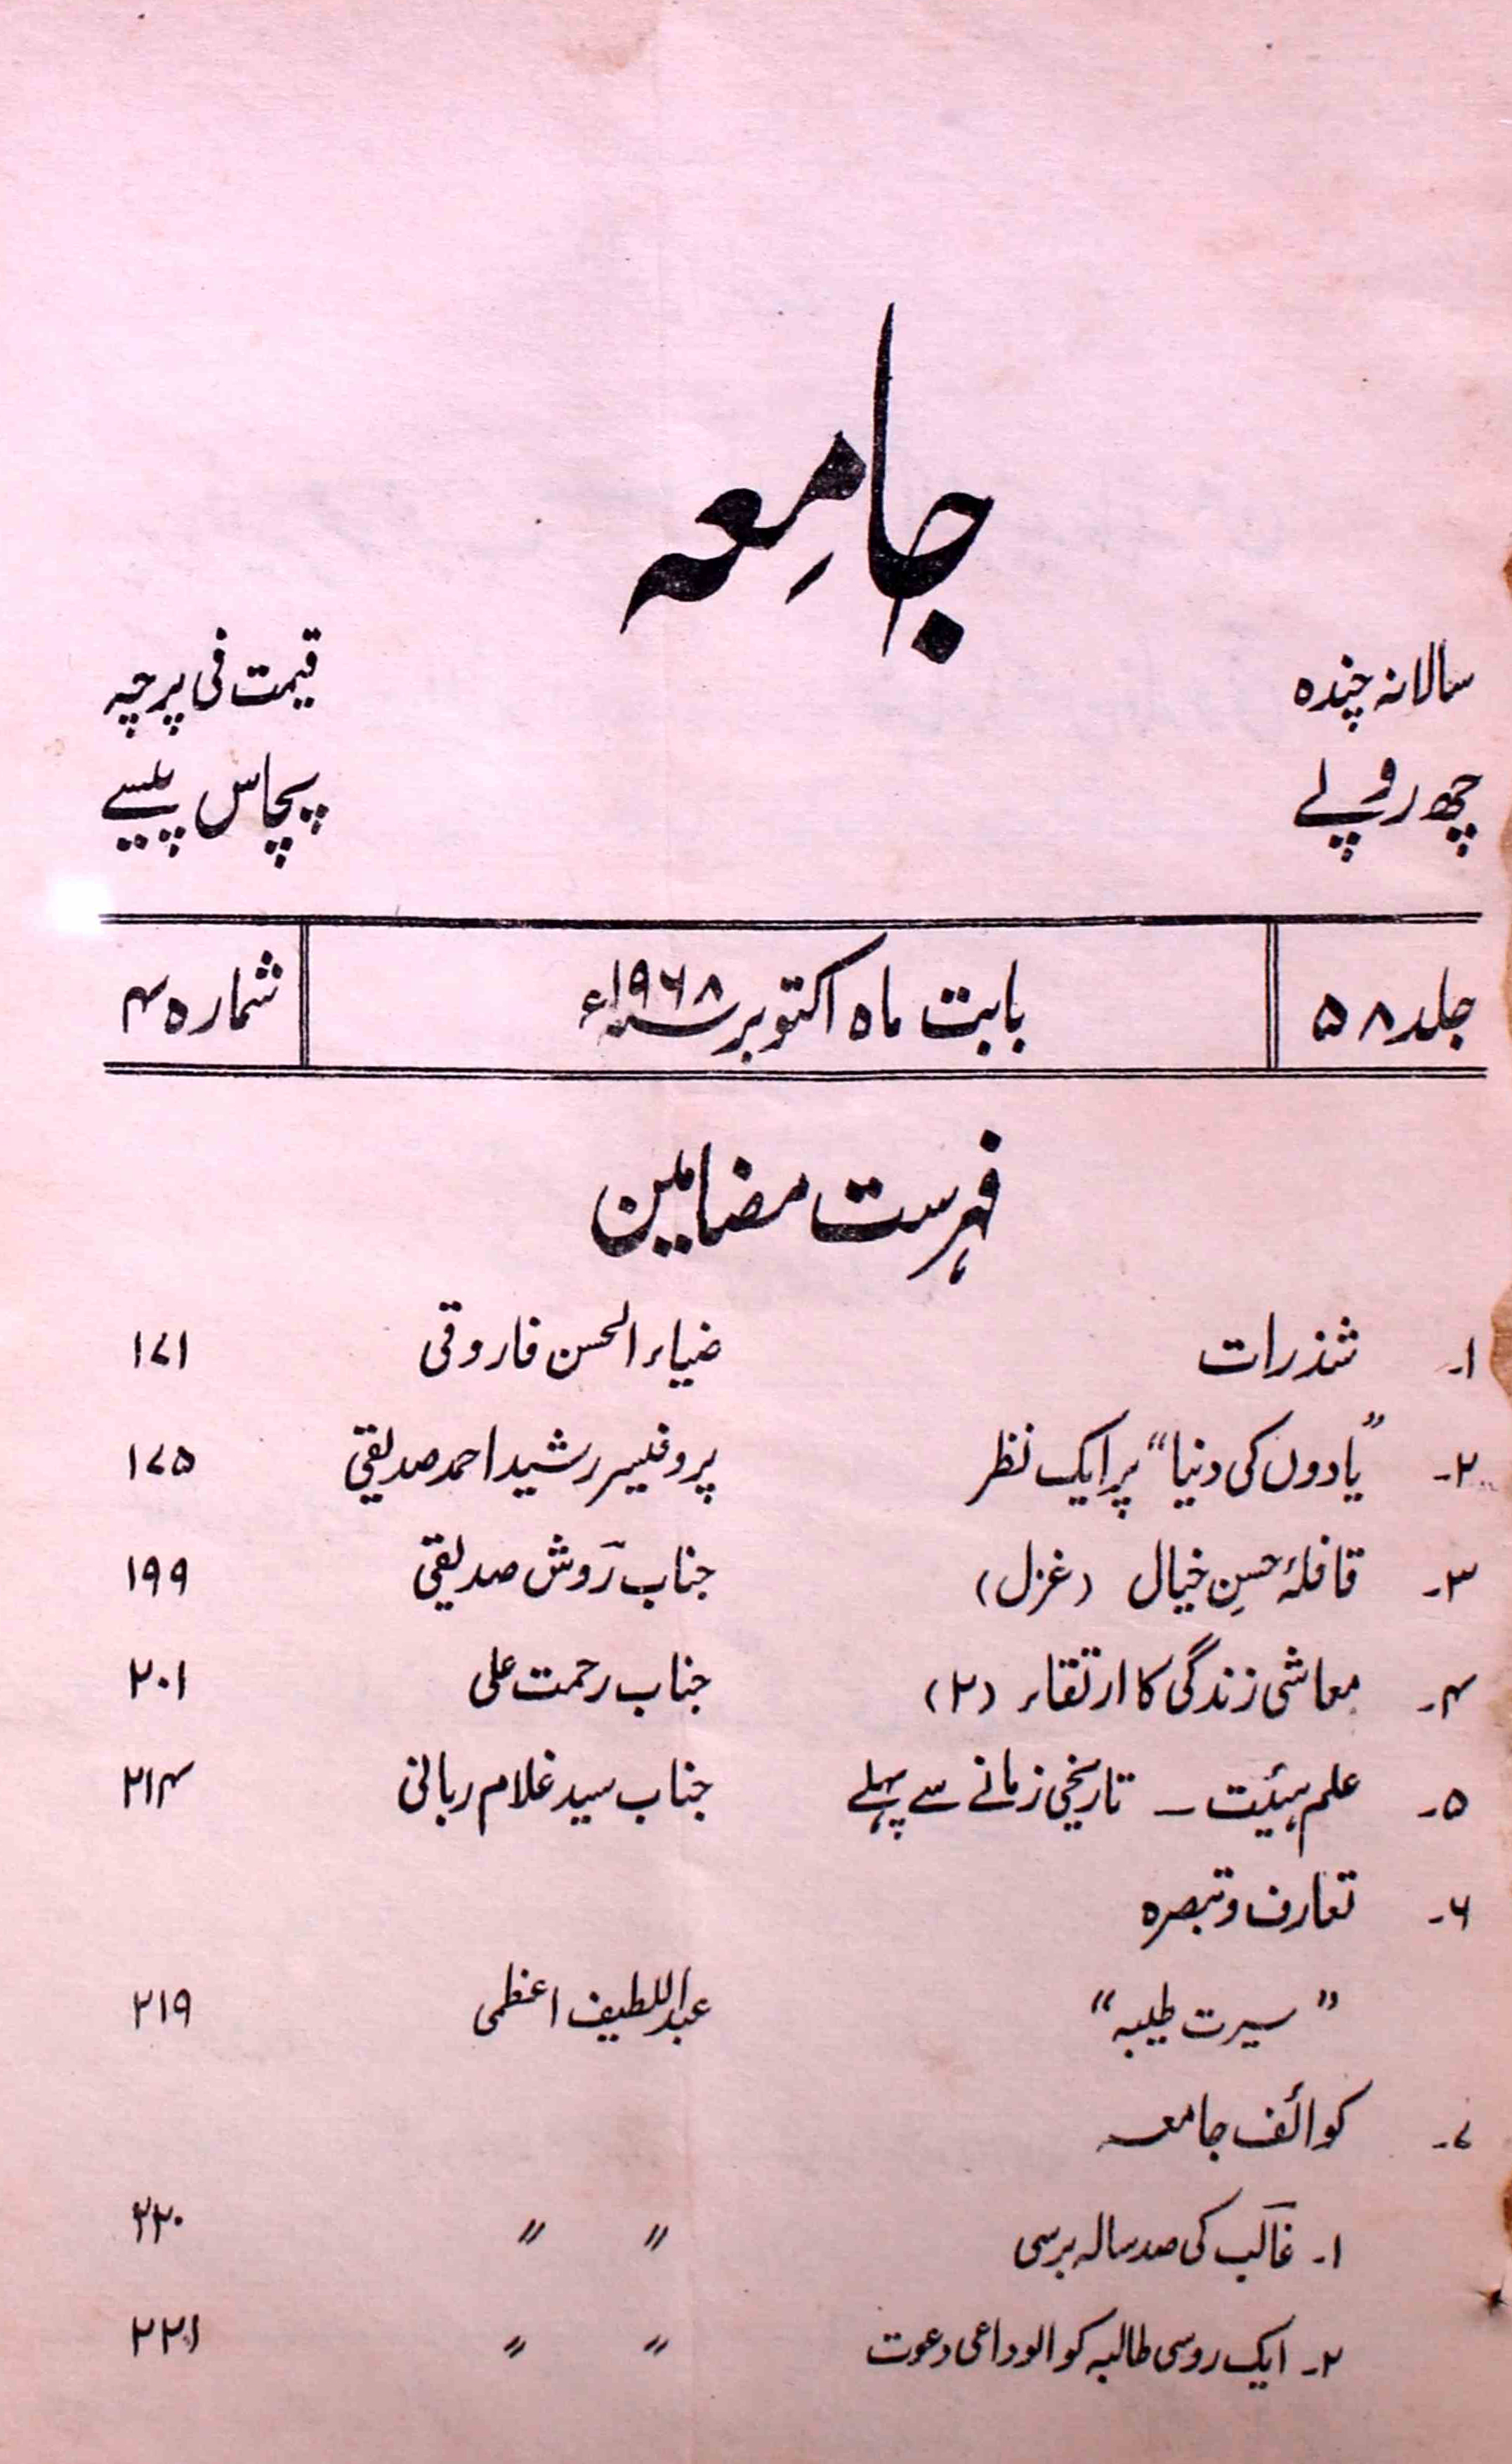 جامِعہ
سالانہ چندہ قیمت فی پرچہ
چھ روپے پچاس پیسے
جلد ۵۸ بابت ماہ اکتوبر ۱۹۶۸ء شمارہ ۴
فہرست مضامین
۱۔ شذرات ضیاء الحسن فاروقی ۱۷۱
۲۔ ”یادوں کی دنیا“ پر ایک نظر پروفیسر رشید احمد صدیقی ۱۷۵
۳۔ قافلۂ حسنِ خیال (غزل) جناب روش صدیقی ۱۹۹
۴۔ معاشی زندگی کا ارتقاء (۲) جناب رحمت علی ۲۰۱
۵۔ علم ہیئت – تاریخی زمانے سے پہلے جناب سید غلام ربانی ۲۱۴
۶۔ تعارف و تبصرہ
”سیرت طیبہ“ عبداللطیف اعظمی ۲۱۹
۷۔ کوائف جامعہ
۱۔ غالب کی صد سالہ برسی 〃 〃 ۲۲۰
۲۔ ایک روسی طالبہ کو الوداعی دعوت 〃 〃 ۲۲۱